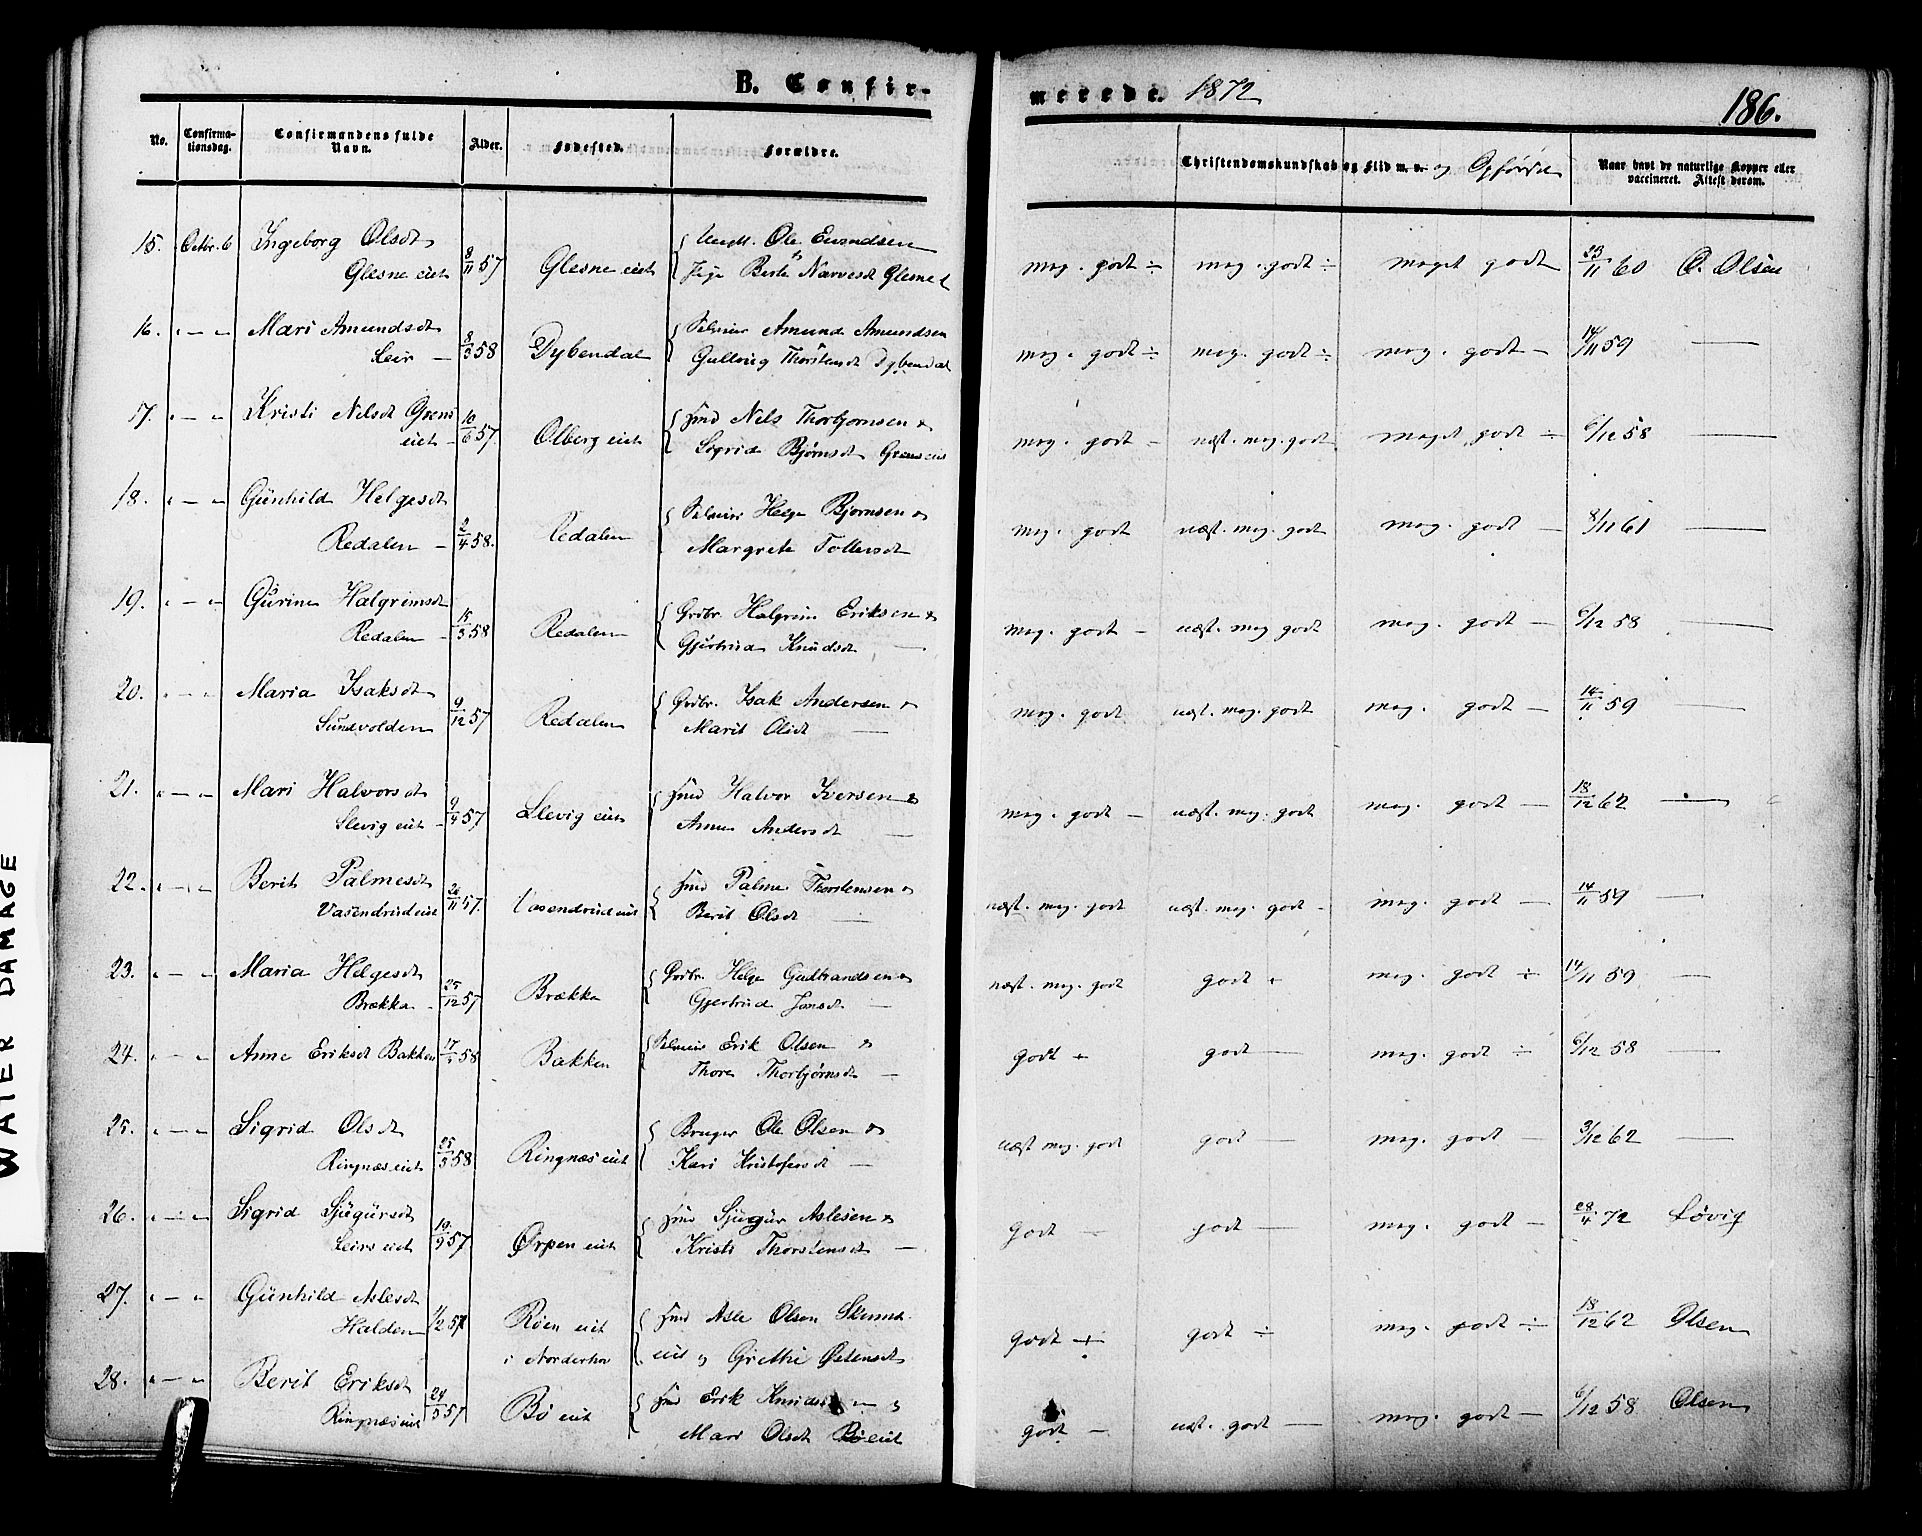 B. Confir-
merede. 1872
186.
No.
Confirma-
tionsdag.
Confirmandens fulde
Navn.
Alder.
Fødested.
Forældre.
Christendomskundskab og Flid m. v. og Opførsel
Naar havt de naturlige Kopper eller
vaccineret. Attest derom.
15. Octbr. 6 Ingeborg Olsdt
Glesne eiet 8/11 57 Glesne eiet
Ole Evendsen
Pige Berte Narvesdt Glesne e
meg. godt ÷ meg. godt ÷ meget godt 23/11 60 O. Olsen
16. " — " Mari Amundsdt
Leir — 8/3 58 Dybendal
Selveier Amund Amundsen
Gullaug Thorstensdt Dybendal
meg. godt ÷ meg. godt ÷ meg. godt — 14/11 59 —
17. " — " Kristi Nilsdt Grens
eiet — 10/6 57. Olberg eiet
Hmd Nels Thorbjørnsen &
Sigrid Bjørnsdt Grens eie
meg. godt — næst. meg. godt meget godt ÷ 6/12 58 —
18. " — " Gunhild Helgesdt
Redalen — 2/4 58. Redalen
Selveier Helge Bjørnsen &
Margrete Tollevsdt
meg. godt næst. meg. godt meg. godt — 8/11 61 —
19. " — " Gurine Halgrimsdt
Redalen — 15/3 58 Redalen
Grdbr. Halgrim Eriksen &
Gjertrud Knudsdt —
meg. godt — næst. meg godt meg. godt — 6/12 58 —
20. " — " Maria Isaksdt
Sundvolden 9/12 57 Redalen
Grdbr. Isak Andersen &
Marit Olsdt —
meg. godt næst. meg. godt meg. godt — 14/11 59 —
21. " — " Mari Halvorsdt
Slevig eiet — 9/9 57 Slevig eiet
Hmd Halvor Iversen &
Anne Andersdt —
meg. godt — næst. meg. godt meg. godt — 18/12 62 —
22. " — " Berit Palmesdt
Vasendrud eiet 26/11 57. Vasendrud eiet
Hmd Palme Thorstensen &
Berit Olsdt —
næst. meg. godt næst. meg. godt - meg. godt — 14/11 59 —
23. " — " Maria Helgesdt
Brækka - 25/12 57 Brækka
Grdbr. Helge Gudbrandsen &
Gjertrud Jonsdt —
næst. meg. godt godt + meg. godt ÷ 14/11 59 —
24. " — " Anne Eriksdt Bakken 17/3 58 Bakken
Selveier Erik Olsen &
Thore Thorbjørnsdt —
godt + godt — meg. godt ÷ 6/12 58 —
25. " — " Sigrid Olsdt
Ringnæs eiet 25/5 58 Ringnæs eiet
Bruger Ole Olsen &
Kari Kristofersdt —
næst meg. godt godt — meg. godt — 3/12 62 —
26. " — " Sigrid Sjugursdt
Leirs eiet 19/9 57. Ørpen eiet
Hmd Sjugur Aslesen &
Kristi Thorstensdt —
godt — godt — meg. godt — 28/4 72 Løvig
27. " — " Gunhild Aslesdt
Halden 1/2 57 Røen eiet
i Norderhov
Hmd Asle Olsen
eiet & Grethe Østensdt
godt + godt ÷ meg. godt ÷ 18/12 62 Olsen
28. " — " Berit Eriksdt
Ringnæs eiet 24/5 57 Bø eiet
Hmd Erik Knudsen &
Mari Olsdt Bø eiet
godt — næst. godt — meg. godt — 6/12 58 Olsen
WATER DAMAGE